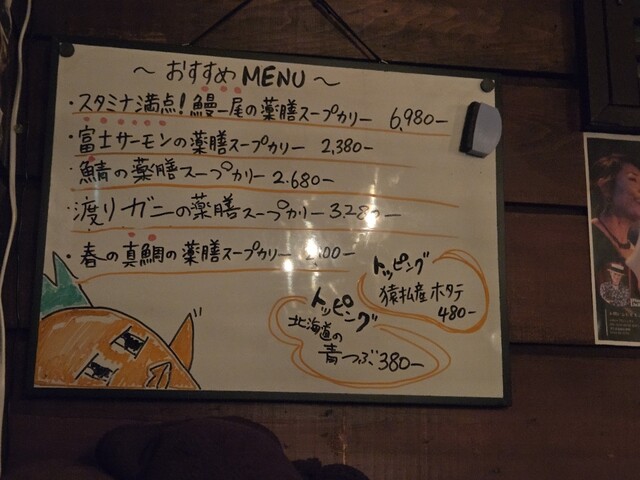 ～おすすめMENU～
・スタミナ満点!鰻一尾の薬膳スープカリー 6,980-
・富士サーモンの薬膳スープカリー 2,380-
・鯖の薬膳スープカリー 2.680-
・渡りガニの薬膳スープカリー
・春の真鯛の薬膳スープカリー
トッピング
猿払産ホタテ
480-
トッピング
北海道の
青つぶ380-